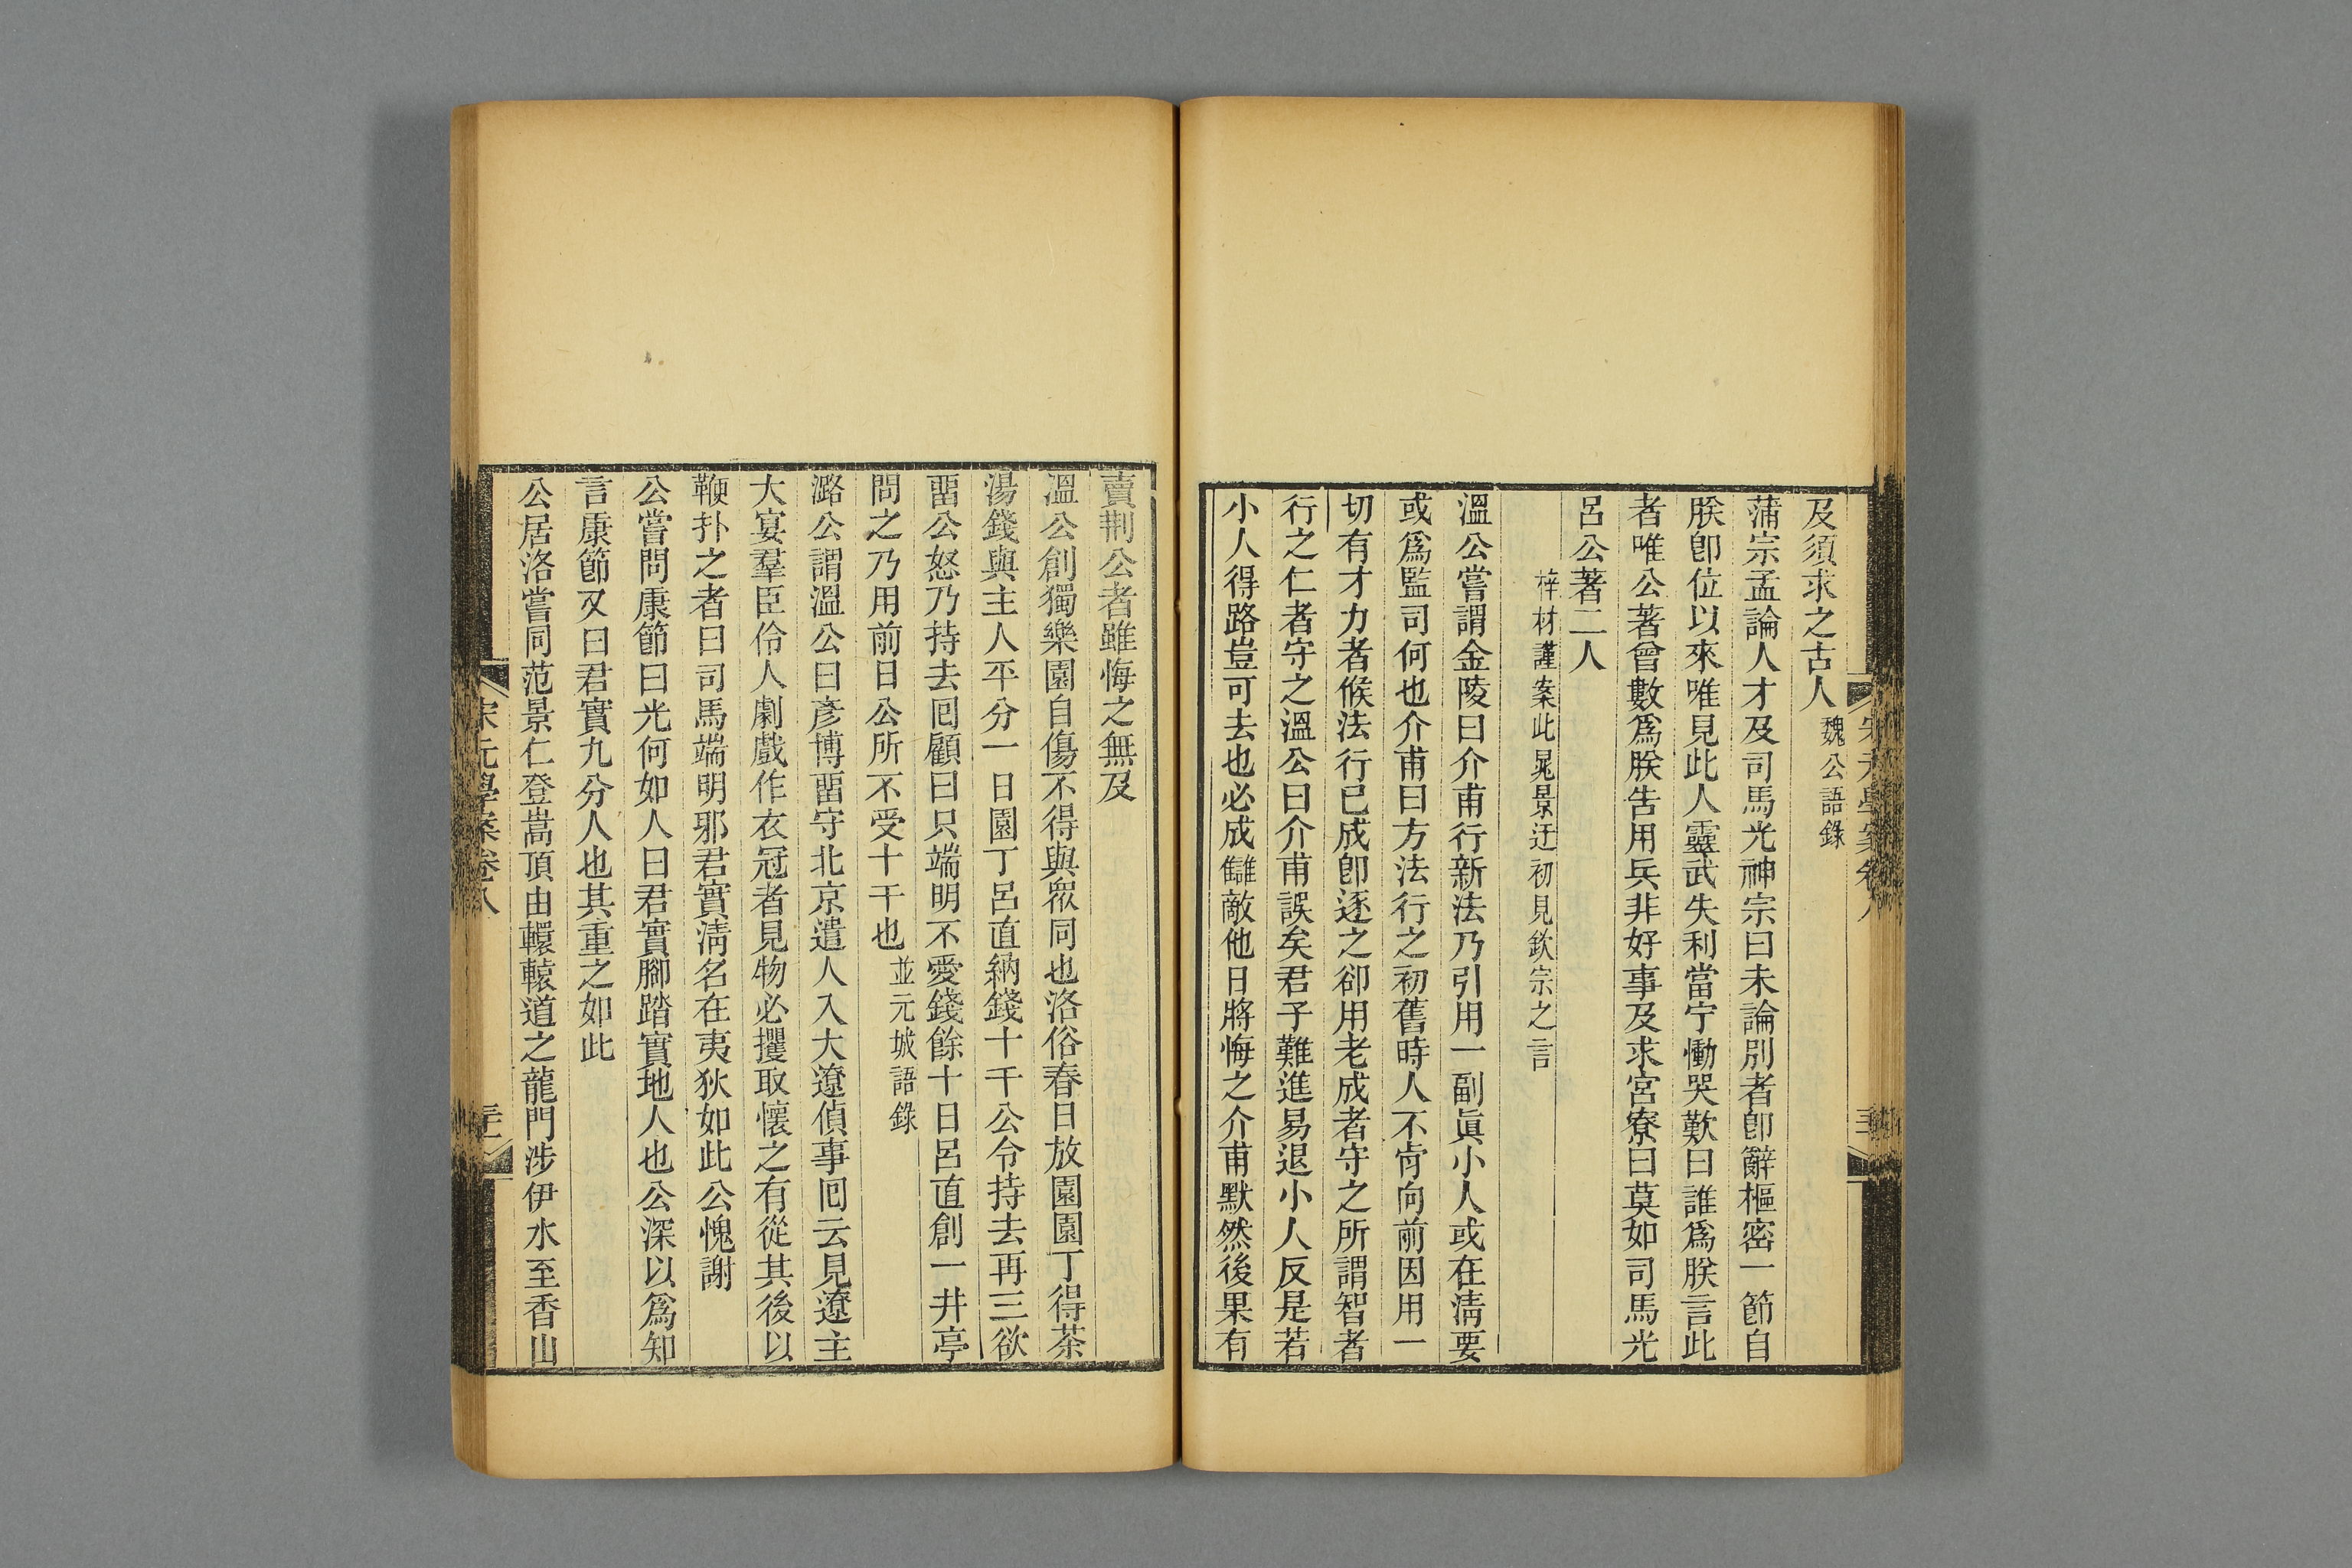 及須求之古人魏公語錄
蒲宗孟論人才及司馬光神宗曰未論別者卽辭樞密一節自
朕卽位以來唯見此人靈武失利當宁慟哭歎曰誰爲朕言此
者唯公著曾數爲朕告用兵非好事及求宮寮曰莫如司馬光
呂公著二人
梓材謹案此晁景迂初見欽宗之言
溫公嘗謂金陵曰介甫行新法乃引用一副眞小人或在淸要
或爲監司何也介甫曰方法行之初舊時人不肯向前因用一
切有才力者候法行已成卽逐之卻用老成者守之所謂智者
行之仁者守之溫公曰介甫誤矣君子難進易退小人反是若
小人得路豈可去也必成讎敵他日將悔之介甫默然後果有
賣荆公者雖悔之無及
溫公創獨樂園自傷不得與眾同也洛俗春日放園園丁得茶
湯錢與主人平分一日園丁呂直納錢十千公令持去再三欲
畱公怒乃持去回顧曰只端明不愛錢餘十日呂直創一井亭
問之乃用前日公所不受十千也並元城語錄
潞公謂溫公曰彥博畱守北京遣人入大遼偵事回云見遼主
大宴羣臣伶人劇戲作衣冠者見物必攫取懷之有從其後以
鞭扑之者曰司馬端明邪君實淸名在夷狄如此公愧謝
公嘗問康節曰光何如人曰君實腳踏實地人也公深以爲知
言康節又曰君實九分人也其重之如此
公居洛嘗同范景仁登嵩頂由轘轅道之龍門涉伊水至香山
宋元學案卷八